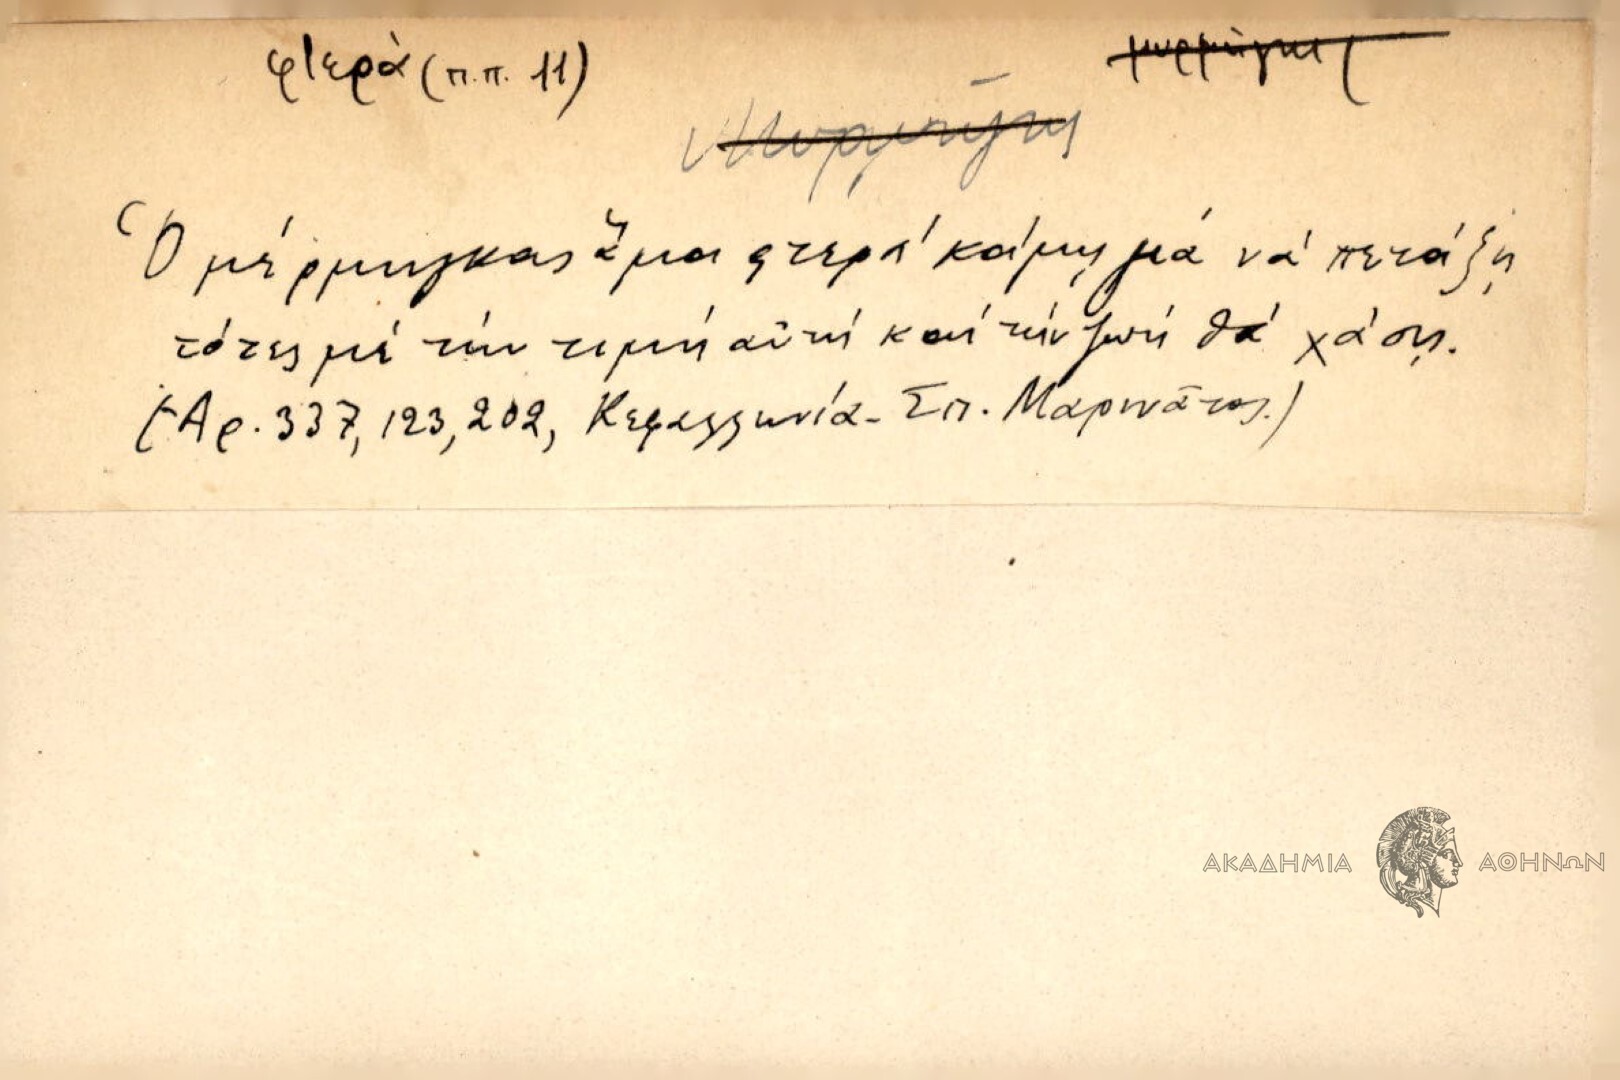 φτερὰ (π.π. 11)
μυρμήγκι
Μυρμήγκι
Ὁ μέρμηγκας ἅμα φτερά κάμῃ γιά νά πετάξῃ
τότες μέ τήν τιμή αὐτή καί τήν ζωή θά χάσῃ.
(Ἀρ. 337, 123, 202, Κεφαλλωνία - Σπ. Μαρινᾶτος.)
ΑΚΑΔΗΜΙΑ ΑΘΗΝΩΝ